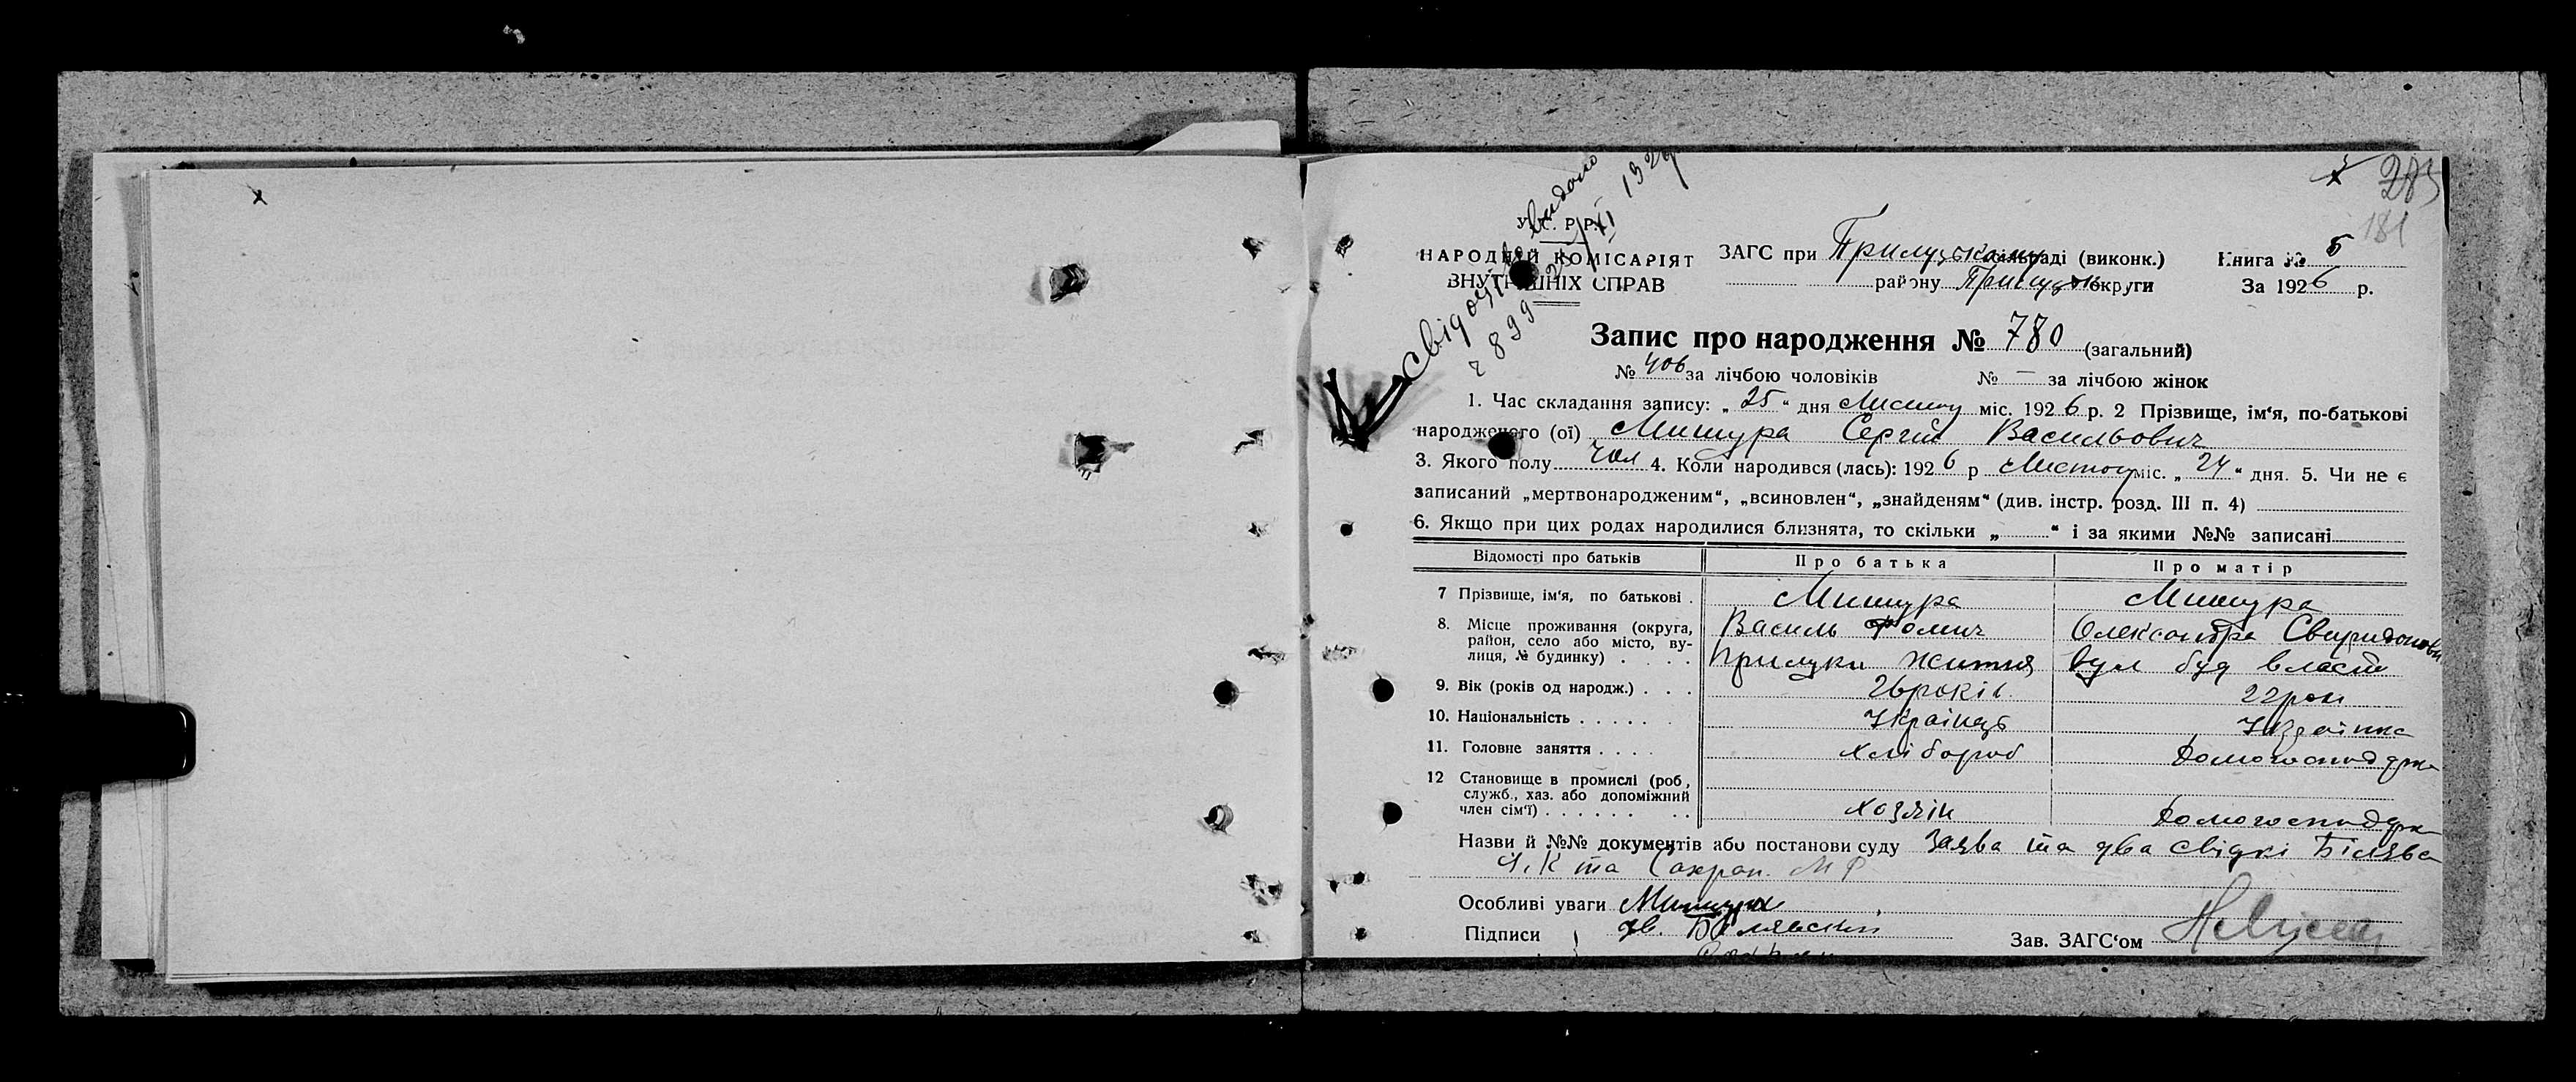 Свідоцтво видано
2/XI 1929
2899
283
181
У. С. Р. Р.
НАРОДНІЙ КОМІСАРІЯТ
ВНУТРІШНІХ СПРАВ
ЗАГС при Прилуцькому сільраді (виконк.)
району Прилуцьк округи
Книга № 5
За 1926 р.
Запис про народження № 780 (загальний)
№ 406 за лічбою чоловіків № — за лічбою жінок
1. Час складання запису: „25“ дня Листоп міс. 1926 р. 2 Прізвище, ім'я, по-батькові
народженого (ої) Мишура Сергій Васильович
3. Якого полу Чол 4. Коли народився (лась): 1926 р Листоп міс. „24“ дня. 5. Чи не є
записаний „мертвонародженим“, „всиновлен“, „знайденям“ (див. інстр. розд. III п. 4)
6. Якщо при цих родах народилися близнята, то скільки „ “ і за якими №№ записані
Відомості про батьків Про батька Про матір
7 Прізвище, ім'я, по батькові . Мишура Мишура
8. Місце проживання (округа, Василь Фомич Олександра Свиридоновн
район, село або місто, ву-
лиця, № будинку) . . . . Прилуки Житня вул буд власн
9. Вік (років од народж.) . . . 26 років 22 роки
10. Національність . . . . . Українець Українка
11. Головне заняття . . . . хлібороб Домогосподарка
12 Становище в промислі (роб,
служб., хаз. або допоміжний
член сім'ї) . . . . . . . . хозяїн Домогосподарка
Назви й №№ документів або постанови суду Заява та два свідкі Білява
І. К та Сохран. М Ф
Особливі уваги Мишура
Підписи Білявський
Зав. ЗАГС'ом